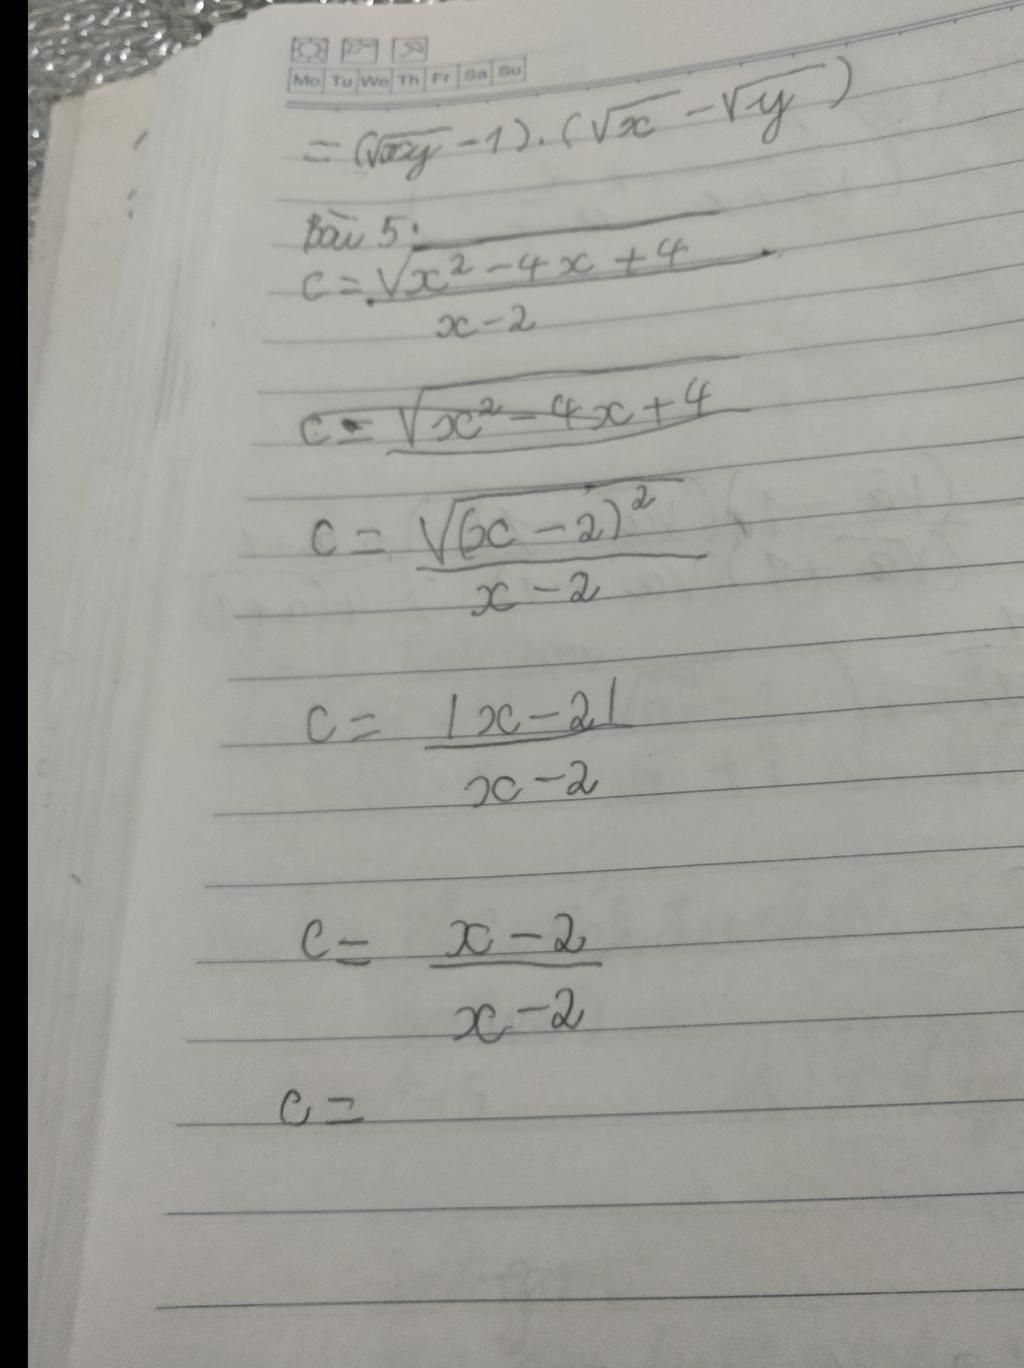 Mo Tu We Th Fr Sa Su
= (√xy - 1).(√x - √y)
Bài 5:
C = √x² - 4x + 4
x - 2
C = √x² - 4x + 4
C = √(x - 2)²
x - 2
C = |x - 2|
x - 2
C = x - 2
x - 2
C =